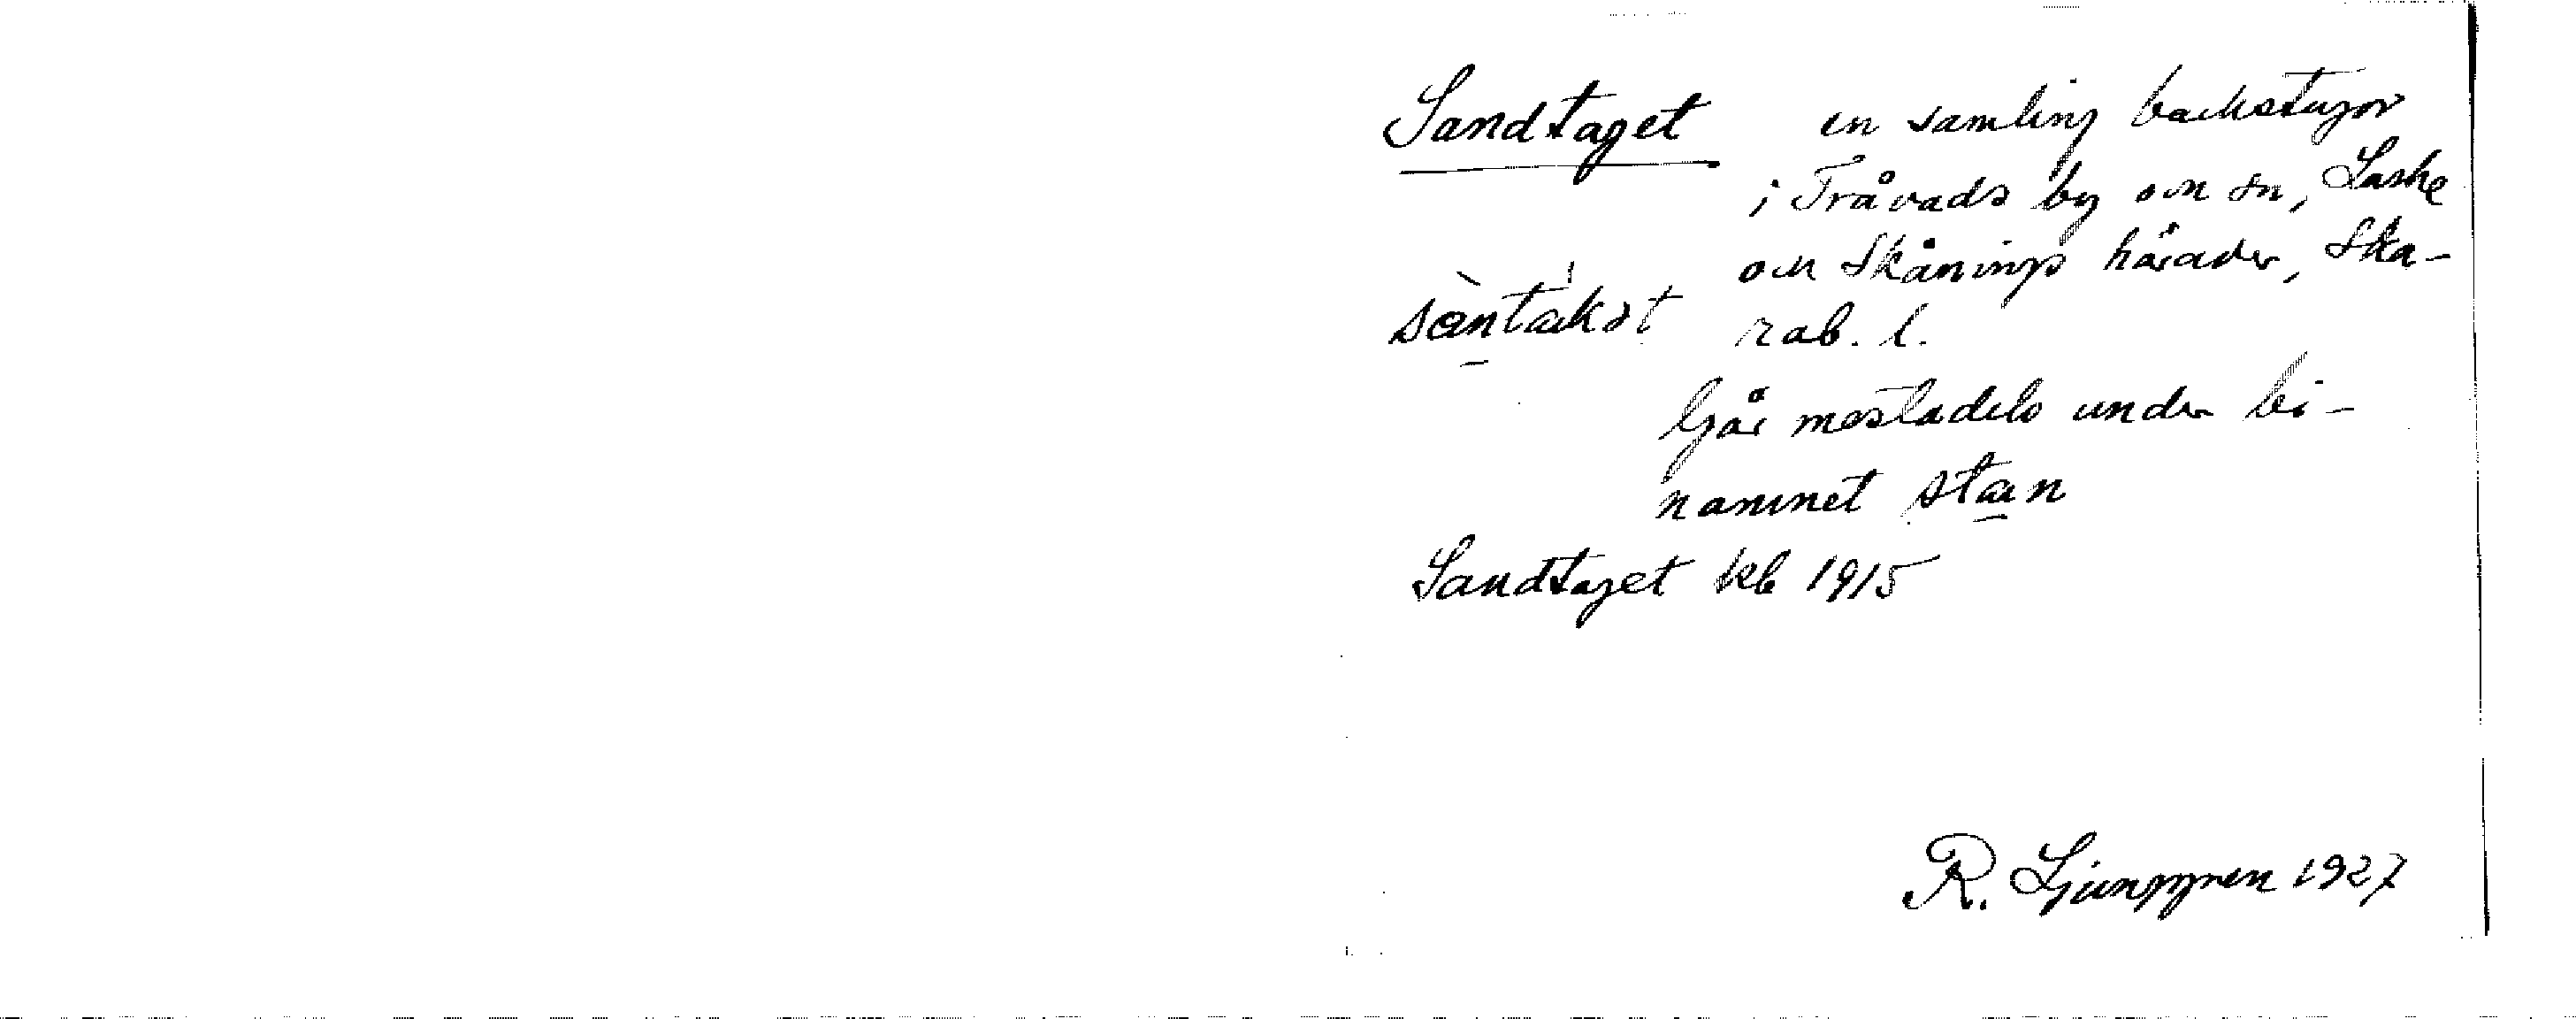 Sandtaget en samling backstugor
i Tråvads by och sn, Laske
och Skånings härader, Ska-
sàntákət rab. l.
Går mestadels under bi-
namnet stan
Sandtaget kb 1915
R. Ljunggren 1927